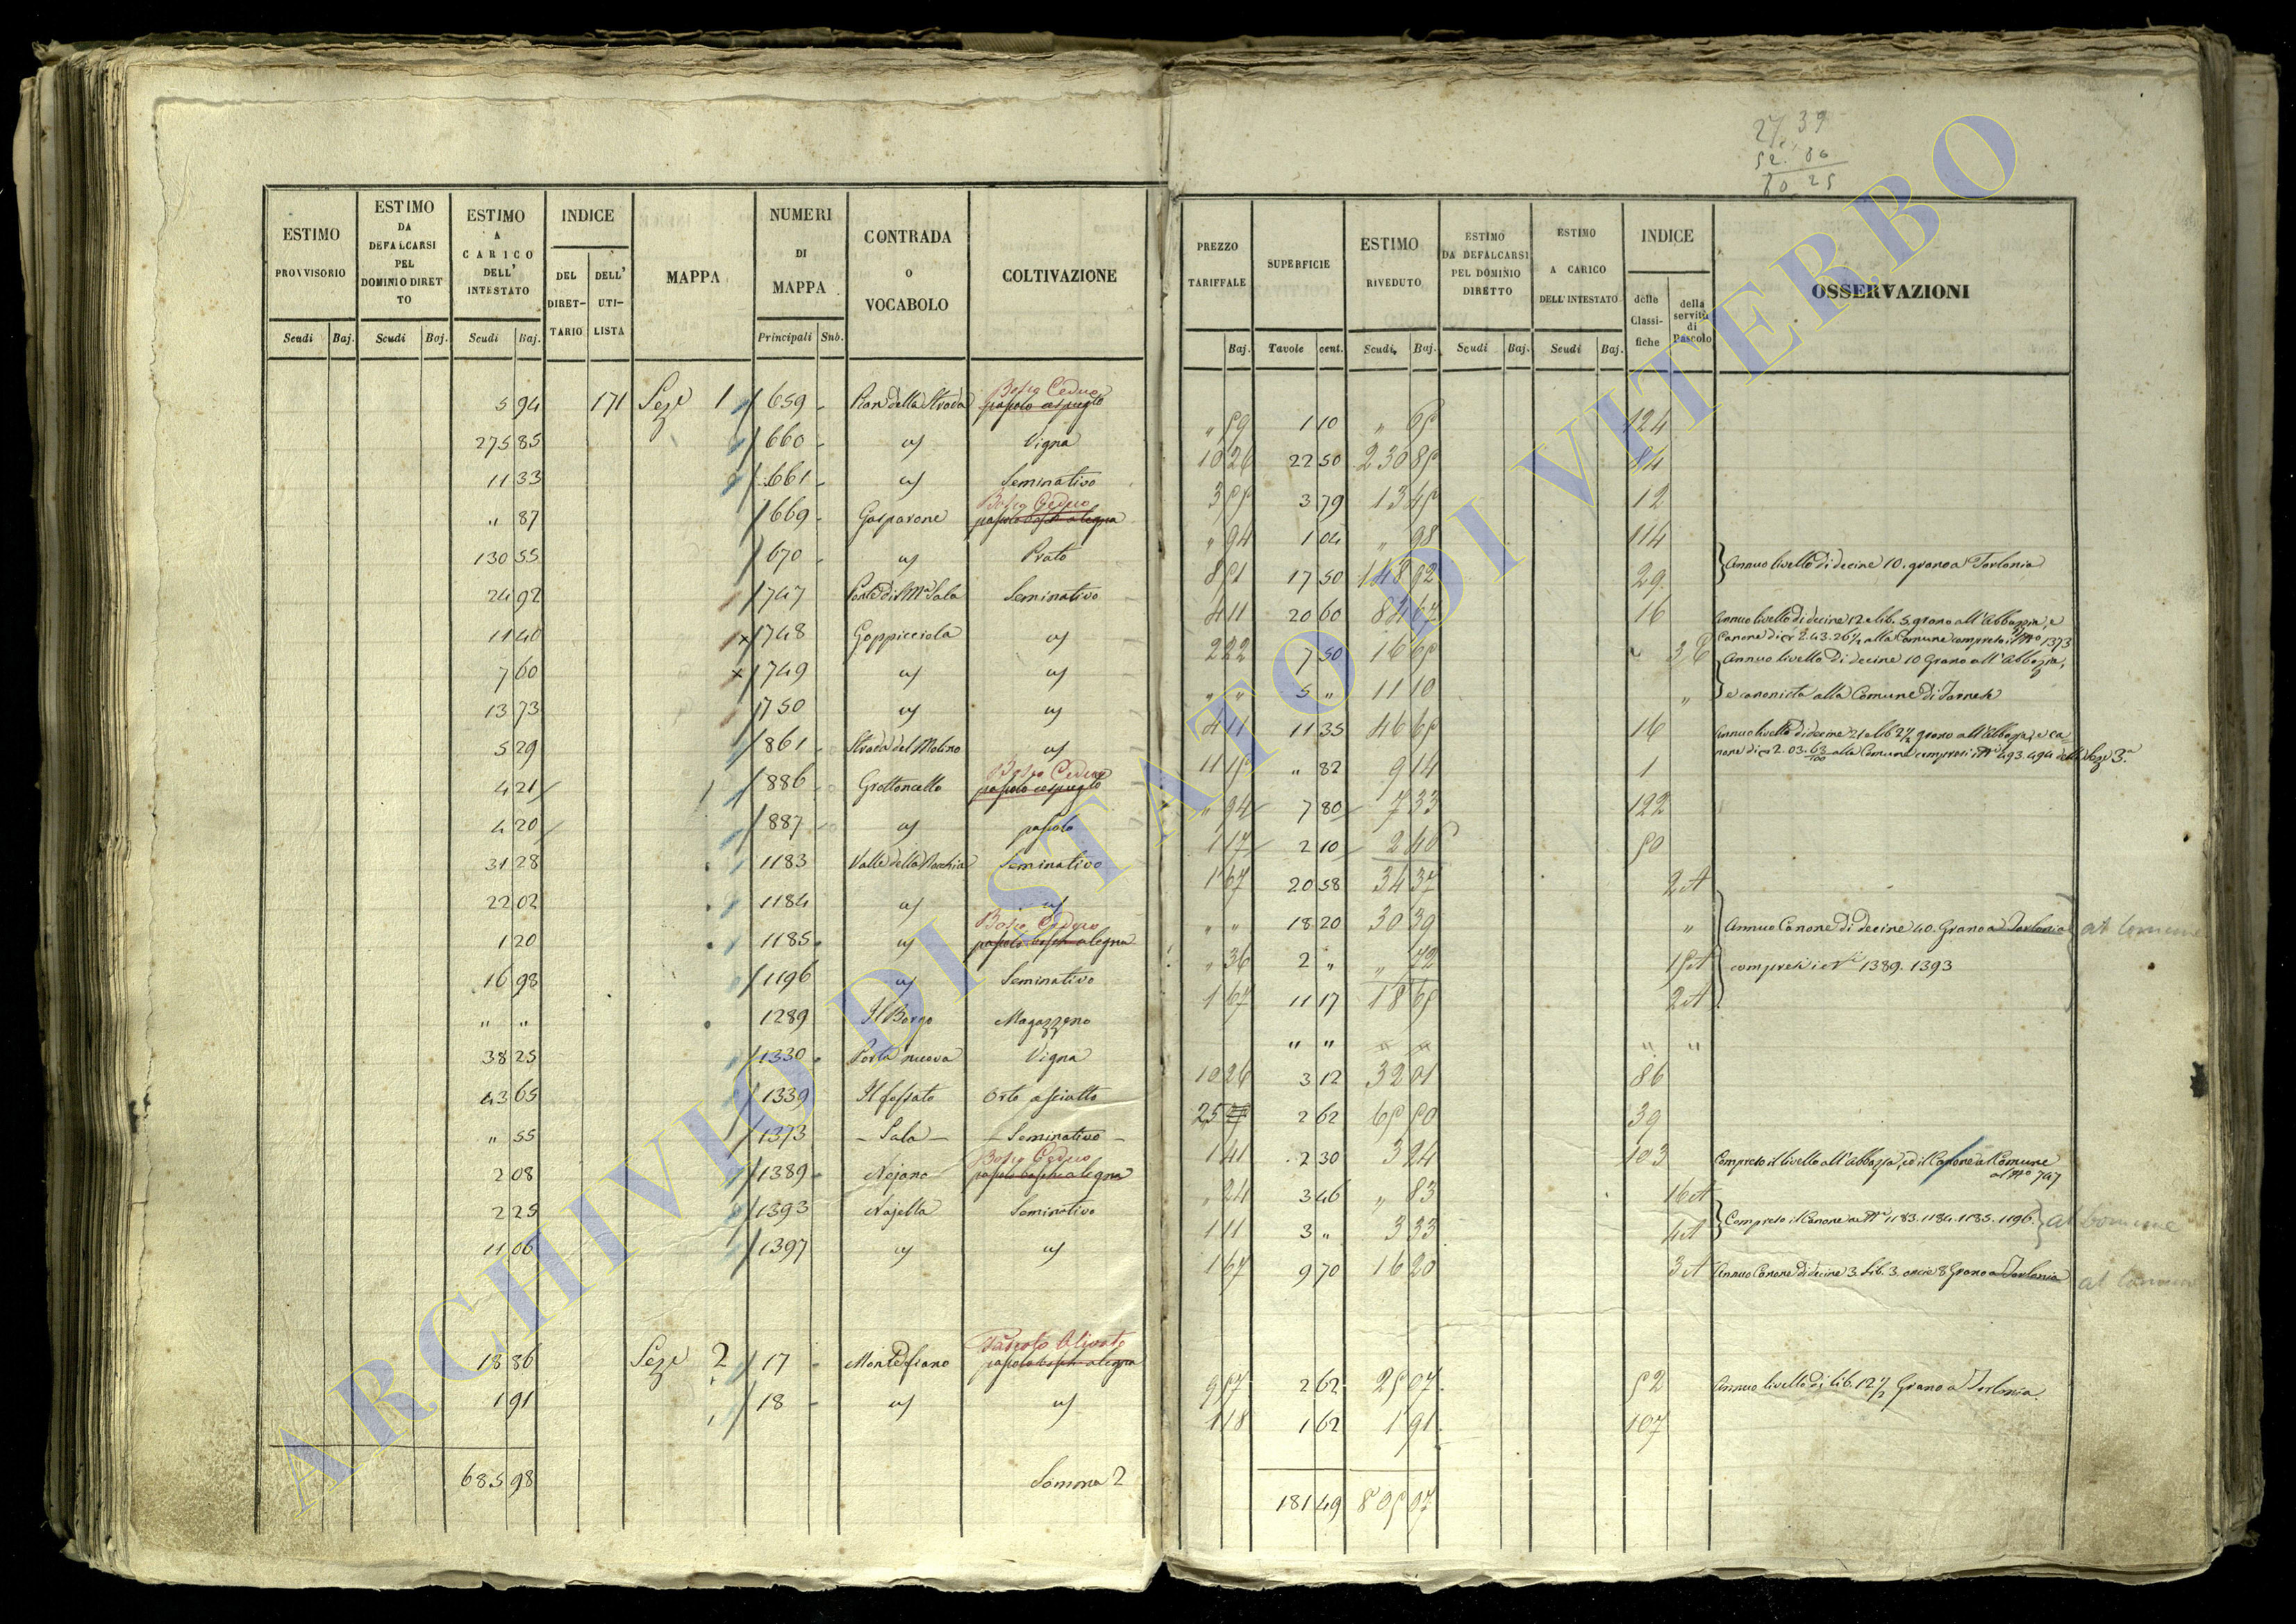 27 39
52. 86
80 25
ESTIMO PROVVISORIO
Scudi Baj.
ESTIMO DA DEFALCARSI PEL DOMINIO DIRETTO
Scudi Baj.
ESTIMO A CARICO DELL' INTESTATO
Scudi Baj.
INDICE
DEL DIRET-TARIO
DELL' UTI-LISTA
MAPPA
NUMERI DI MAPPA
Principali Sub.
CONTRADA O VOCABOLO
COLTIVAZIONE
PREZZO TARIFFALE
Baj.
SUPERFICIE
Tavole cent.
ESTIMO RIVEDUTO
Scudi Baj.
ESTIMO DA DEFALCARSI PEL DOMINIO DIRETTO
Scudi Baj.
ESTIMO A CARICO DELL'INTESTATO
Scudi Baj.
INDICE
delle Classi-fiche
della servitù di Pascolo
OSSERVAZIONI
5 94 171 Seze 1 659 Pian della Strada Bosco Ceduo pascolo cespuglto " 59 1 10 " 65 124
275 85 660 " Vigna 10 26 22 50 230 85 84
11 33 661 " Seminativo 3 55 3 79 13 45 12
" 87 669 Gasparone Bosco Ceduo " 94 1 04 " 98 114
130 55 670 " Prato 8 51 17 50 148 92 29 Annuo livello di decine 10. grano a Torlonia
24 92 747 Seminativo 4 11 20 60 84 67 16 Annuo livello di decine 12 e lib. 5. grano all'Abbazzia, e
Canone di 2.43.26½ alla Comune compreso il Nº 1373
11 40 748 Goppicciola " 2 22 7 50 16 65 Annuo livello di decine 10 Grano all'Abbazzia,
7 60 749 " " " " 5 " 11 10 " e canonicto alla Comune di Farnese
13 73 750 " " 4 11 11 35 46 65 16 Annuo livello di decine 21 e lib 2½ grano all'Abbazia, e ca
none di 2.03.63/100 alla Comune compresi i Ni 493. 494 della Seze 3.a
5 29 861 Strada del Molino " 11 15 " 82 9 14 1
4 21 886 Grottoncello Bosco Ceduo pascolo cespuglto " 94 7 80 7 33 122
4 20 887 " pascolo 1 17 2 10 2 46 50
31 28 1183 Valle della Nocchia Seminativo 1 67 20 58 34 37 2 A
22 02 1184 " " " " 18 20 30 39 " Annuo Canone di decine 40. Grano a Torlonia al Comune
1 20 1185 " Bosco Ceduo pascolo bosch. a legna " 36 2 " " 72 15 A compresi i Ni 1389. 1393
16 98 1196 " Seminativo 1 67 11 17 18 65 2 A
" " 1289 Il Borgo Magazzeno " " " " " "
38 25 1330 Porta nuova Vigna 10 26 3 12 32 01 86
43 65 1339 Il fossato Orto asciutto 25 2 62 65 50 39
" 55 1373 Sala Seminativo 1 41 2 30 3 24 103 Compreso il livello all'Abbazzia, ed il Canone al Comune
al Nº 747
2 08 1389 Nejano Bosco Ceduo pascolo bosch. a legna " 24 3 46 " 83 16 A
2 25 1393 Najella Seminativo 1 11 3 " 3 33 4 A Compreso il Canone ne Ni 1183. 1184. 1185. 1196. al Comune
11 06 1397 " " 1 67 9 70 16 20 3 A Annuo Canone di decine 3. Lib. 3. oncie 8 Grano a Torlonia al Comune
18 86 Seze 2 17 Montefiano Pascolo Olivato pascolo bosch. a legna 9 57 2 62 25 07 52 Annuo livello di lib. 12½ Grano a Torlonia.
1 91 18 " " 1 18 1 62 1 91 107
685 98 Somma 2 181 49 895 97
ARCHIVIO DI STATO DI VITERBO